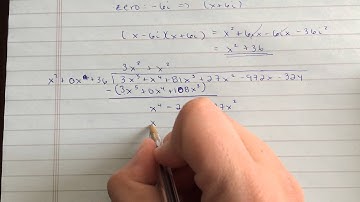 zero: -6i ⇒ (x+6i)
(x-6i)(x+6i) = x² + 6ix - 6ix - 36i²
= x² + 36
3x³ + x²
x² + 0x + 36 ) 3x⁵ + x⁴ + 81x³ + 27x² - 972x - 324
-(3x⁵ + 0x⁴ + 108x³)
x⁴ - 2 7x²
x